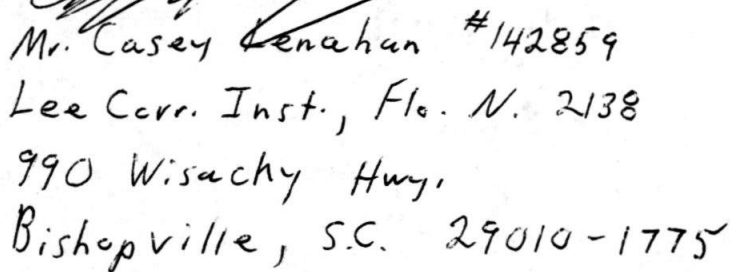 Mr. Casey Lenahan #142859
Lee Corr. Inst., Flo. N. 2138
990 Wisachy Hwy.
Bishopville, S.C. 29010-1775